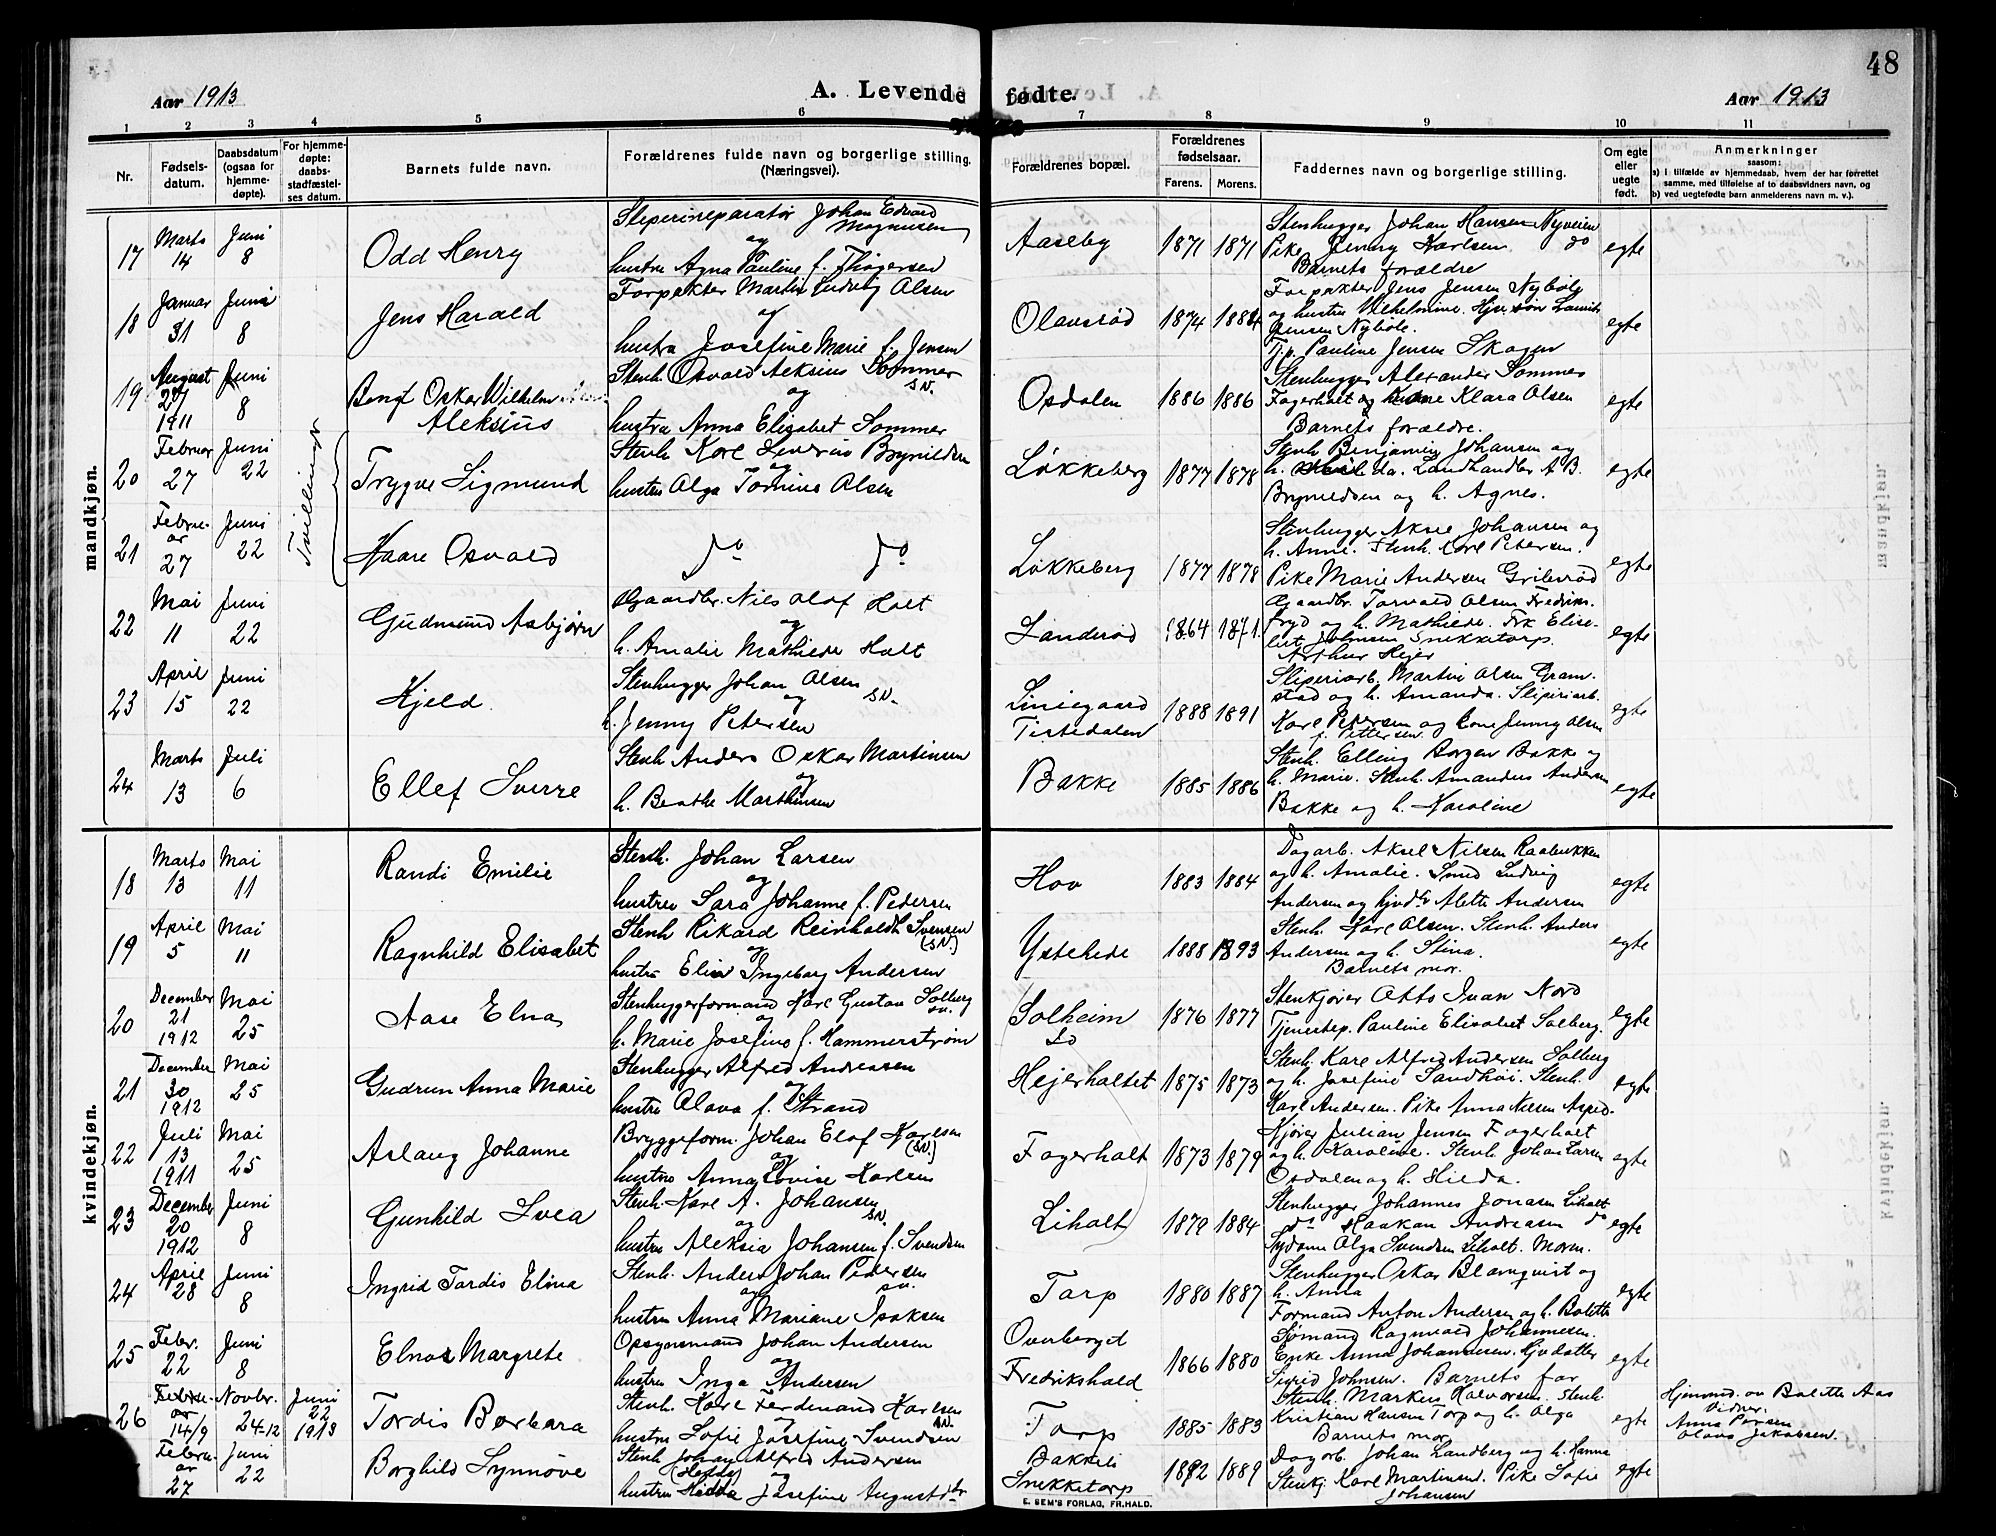 48
Aar 1913
A. Levende fødte.
Aar 1913
1 2 3 4 5 6 7 8 9 10 11
Nr.
Fødsels-
datum.
Daabsdatum
(ogsaa for
hjemme-
døpte).
For hjemme-
døpte:
daabs-
stadfæstel-
ses datum.
Barnets fulde navn.
Forældrenes fulde navn og borgerlige stilling.
(Næringsvei).
Forældrenes bopæl.
Forældrenes
fødselsaar.
Farens. Morens.
Faddernes navn og borgerlige stilling.
Om egte
eller
uegte
født.
Anmerkninger
saasom:
a) I tilfælde av hjemmedaab, hvem der har forrettet
samme, med tilføielse af to daabsvidners navn, og
b) ved uegtefødte barn anmelderens navn m. v.).
mandkjøn.
17 Marts 14 Juni 8 Odd Henry
Sliperireparatør Johan Edvard
Magnusen
og
hustru Agna Pauline f. Thøgersen
Aaseby 1871 1871
Stenhugger Johan Hansen Nyveien
Pike Jenny Karlsen do
Barnets forældre
egte
18 Januar 31 Juni 8 Jens Harald
Forpakter Martin Ludvig Olsen
og
hustru Josefine Marie f. Jensen
Olavsrød 1874 1884
Forpakter Jens Jensen Nybøle
og hustru Vilhelmine. Hjv. søn Laurits
Jensen Nybøle.
Tj.p. Pauline Jensen Skogen
egte
19 August 27 1911 Juni 8 Bengt Oskar Wilhelm
Aleksius
Stenh. Osvald Aleksius Sommer
s.v.
og
hustru Anna Elisabet Sommer
Osdalen 1886 1886
Stenhugger Alexander Sommer
Fagerholt og kone Klara Olsen
Barnets forældre.
egte
Tvillinger
20 Februar 27 Juni 22 Trygve Sigmund
Stenh Karl Severin Brynildsen
og
hustru Olga Tomine Olsen
Løkkeberg 1877 1878
Stenh. Benjamin Johansen og
h. Hilda. Landhandler A B.
Brynildsen og h. Agnes.
egte
21 Februar 27 Juni 22 Haare Osvald
do do
Løkkeberg 1877 1878
Stenhugger Aksel Johansen og
h. Anne. Stenh. Karl Petersen.
Pike Marie Andersen Grilerød
egte
22 Mai 11 Juni 22 Gudmund Asbjørn
Gaardbr. Nils Olaf Holt
og
h. Amalie Mathilde Holt
Landerød 1864 1871.
Gaardbr. Torvald Olsen Fredriks-
fryd og h. Mathilde. Frk Elise-
bet Johnsen Snekketorp.
Arthur Hejer
egte
23 April 15 Juni 22 Kjeld.
Stenhugger Johan Olsen
og s.v.
h. Jenny Petersen
Liniegaard
Tistedalen 1888 1891
Sliperiarb. Martin Olsen Gram-
stad og h. Amanda. Slipiriarb.
Karl Petersen og kone Jenny Olsen
f. Pettersen
egte
24 Marts 13 Juli 6 Ellef Sverre
Stenh Anders Oskar Martinsen
og
h. Beathe Marthinsen
Bakke 1885 1886
Stenh. Elling Borgen Bakke og
h. Marie. Stenh. Amandus Andersen
Bakke og h. Karoline
egte
kvindekjøn.
18 Marts 13 Mai 11 Randi Emilie
Stenh. Johan Larsen
og
hustru Sara Johanne f. Pedersen
Hov 1883 1884
Dagarb. Aksel Nilsen Raabukken
og h. Amalie. Smed Ludvig
Andersen og hjvdtr Alette Andersen
egte
19 April 5 Mai 11 Ragnhild Elisabet
Stenh Rikard Reinholdt Svensen
(s.v.)
og
hustru Elin Ingeborg Andersen
Ystehede 1888 1893
Stenh. Karl Olsen. Stenh. Anders
Andersen og h. Stina.
Barnets mor.
egte
20 December 21 1912 Mai 25 Aase Elna
Stenhuggerformand Karl Gustav Solberg
s.v.
og
h. Marie Josefine f. Hammerstrøm
Solheim
Ld 1876 1877
Stenkjører Otto Ivan Nord
Tjenestep. Pauline Elisabet Solberg.
egte
21 December 30 1912 Mai 25 Gudrun Anna Marie
Stenhugger Alfred Andreasen
og
hustru Olava f. Strand
Hejerholtet 1875 1873
Stenh. Karl Alfred Andersen Solberg
og h. Josefine Sandhøi. Stenh.
Karl Andersen. Pike Anna Nilsen Asped.
egte
22 Juli 13 1911 Mai 25 Aslaug Johanne
Bryggeform. Johan Elof Karlsen
(s.v.)
og
hustru Anna Lovise Karlsen
Fagerholt 1873 1879
Kjører Julian Jensen Fagerholt
og h. Karoline. Stenh. Johan Larsen
Osdalen og h. Hilda.
egte
23 December 20 1912 Juni 8 Gunhild Svea
Stenh. Karl A. Johansen
s.v.
og
hustru Aleksia Johansen f. Svendsen
Liholt 1879 1884
Stenhugger Johannes Jonasen Liholt
do Haakan Andreasen do
Sydame Olga Svendsen Liholt. Moren.
egte
24 April 28 Juni 8 Ingrid Tordis Elina
Stenh. Anders Johan Pedersen
s.v.
og
hustru Anna Mariane Isaksen
Torp 1880 1887
Stenhugger Oskar Blomqvist og
h. Anna
Formand Anton Andersen og h. Bolette
egte
25 Febr. 22 Juni 8 Elna Margrete
Opsynsmand Johan Andersen
og
hustru Inga Andersen
Overberget
Fredrikshald 1866 1880
Sømand Ragnvald Johannesen.
Enke Anna Johannesen. Hjvdatter
Sigrid Johnsen. Barnets far
egte
26 Februar 14/9 Novbr. 24-12 Juni 22 1913 Tordis Borbara
Stenh. Karl Ferdinand Karlsen
s.v.
og
hustru Sofie Josefine Svendsen
Torp 1885 1883
Stenh. Markus Halvorsen. Stenh.
Kristian Hansen Torp og h. Olga
Barnets mor
egte
Hjemmed. av Bolette Aas
Vidner.
Anna Persen
Olava Jakobsen.
Februar 27 Juni 22 Borghild Synnøve
Stenh Johan Alfred Andersen
(Hedda) og
hustru Hedda Josefine Augustdtr
Bakkeli
Snekketorp 1882 1889
Dagarb. Johan Landberg og h. Hanna
Stenkj. Karl Martinsen. Pike Sofie
Johansen
egte
E. SEM'S FORLAG, FR.HALD.